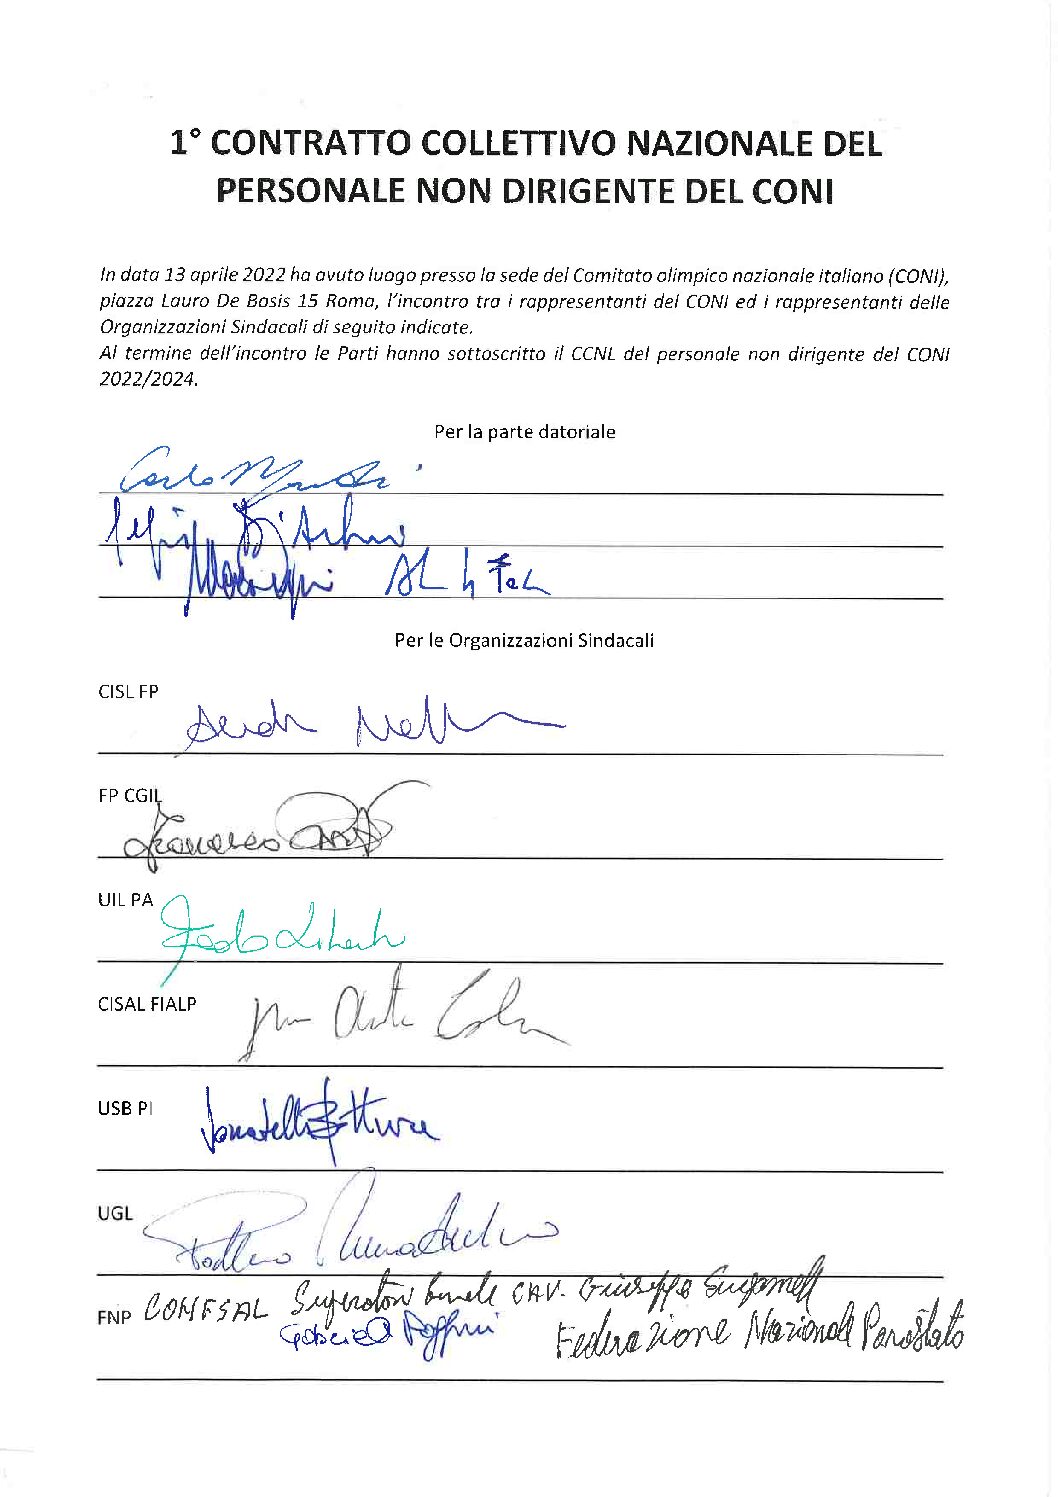 1° CONTRATTO COLLETTIVO NAZIONALE DEL
PERSONALE NON DIRIGENTE DEL CONI
In data 13 aprile 2022 ha avuto luogo presso la sede del Comitato olimpico nazionale italiano (CONI),
piazza Lauro De Bosis 15 Roma, l'incontro tra i rappresentanti del CONI ed i rappresentanti delle
Organizzazioni Sindacali di seguito indicate.
Al termine dell'incontro le Parti hanno sottoscritto il CCNL del personale non dirigente del CONI
2022/2024.
Per la parte datoriale
Carlo
Per le Organizzazioni Sindacali
CISL FP
FP CGIL
Francesco
UIL PA
CISAL FIALP
USB PI
UGL
FNP CONFSAL CAV. Giuseppe
Federazione Nazionale Parastato